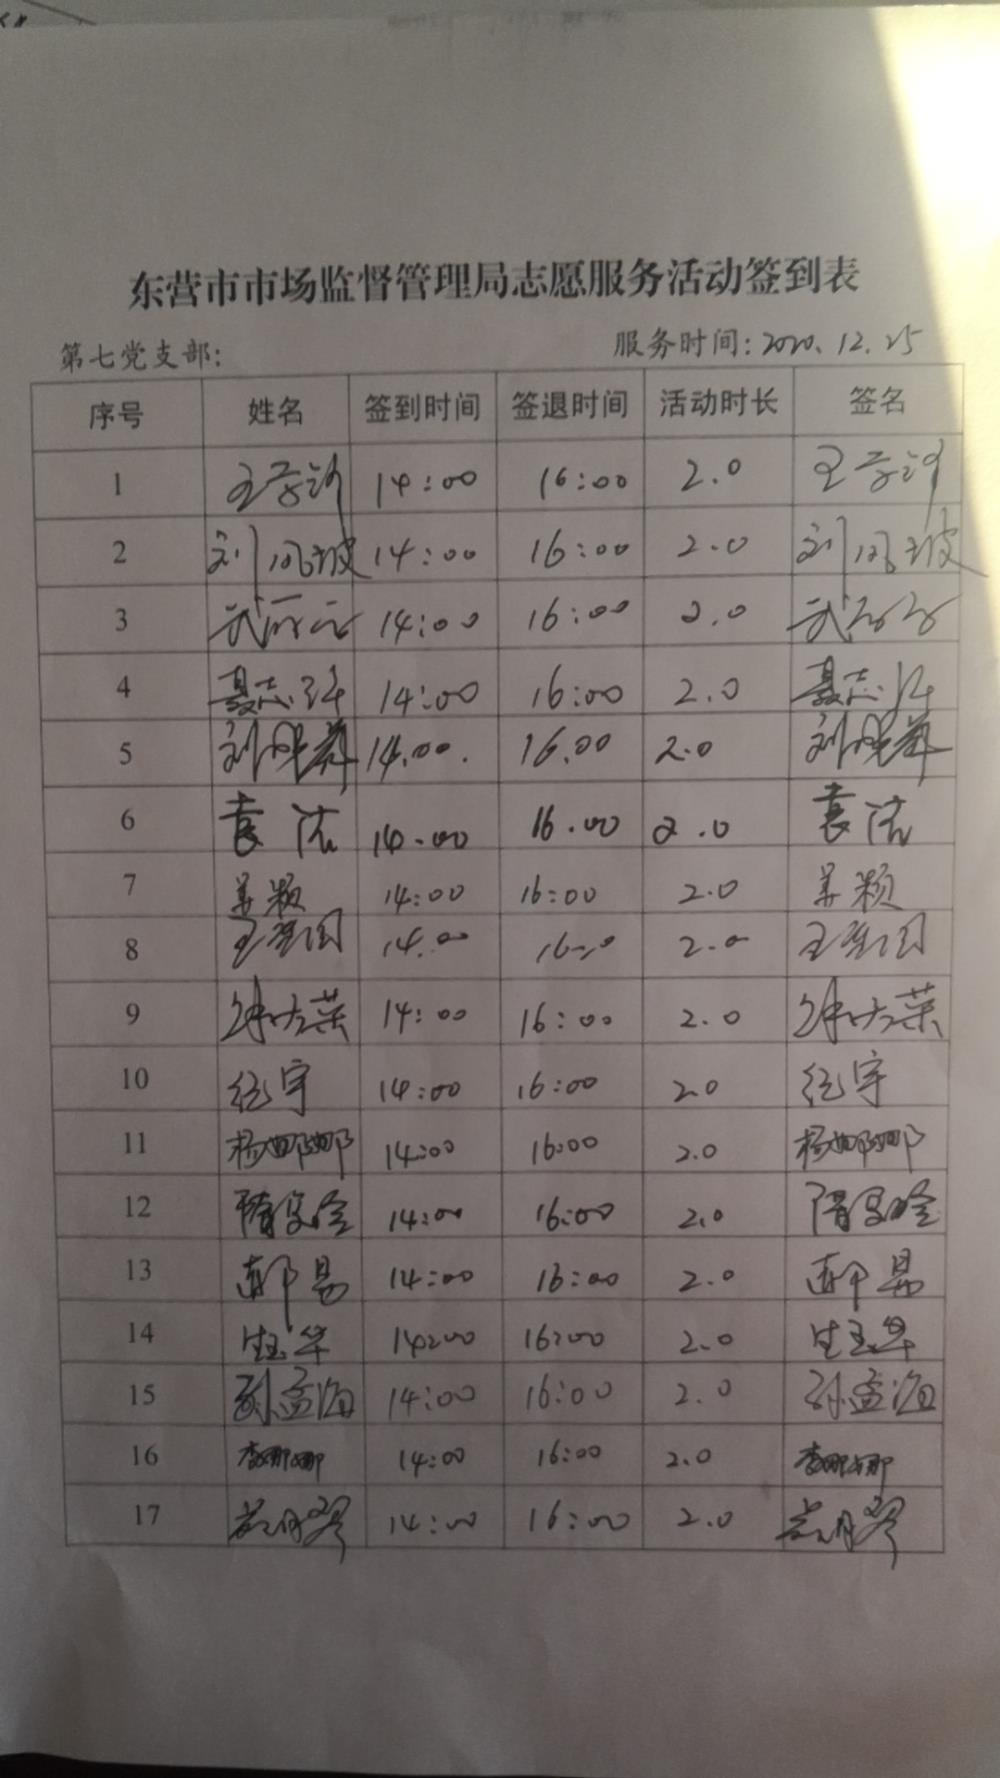 东营市市场监督管理局志愿服务活动签到表
第七党支部: 服务时间: 2020.12.25
序号 姓名 签到时间 签退时间 活动时长 签名
1 14:00 16:00 2.0
2 刘凤玻 14:00 16:00 2.0 刘凤玻
3 14:00 16:00 2.0
4 聂志 14:00 16:00 2.0 聂志
5 刘晓燕 14.00. 16.00 2.0 刘晓燕
6 袁洁 14.00 16.00 2.0 袁洁
7 姜颖 14:00 16:00 2.0 姜颖
8 14.00 2.0
9 14:00 16:00 2.0
10 纪宇 14:00 16:00 2.0 纪宇
11 杨娜娜 14:00 16:00 2.0 杨娜娜
12 14:00 16:00 2.0
13 14:00 16:00 2.0
14 生玉华 14:00 16:00 2.0 生玉华
15 孙孟海 14:00 16:00 2.0 孙孟海
16 李娜娜 14:00 16:00 2.0 李娜娜
17 14:00 16:00 2.0